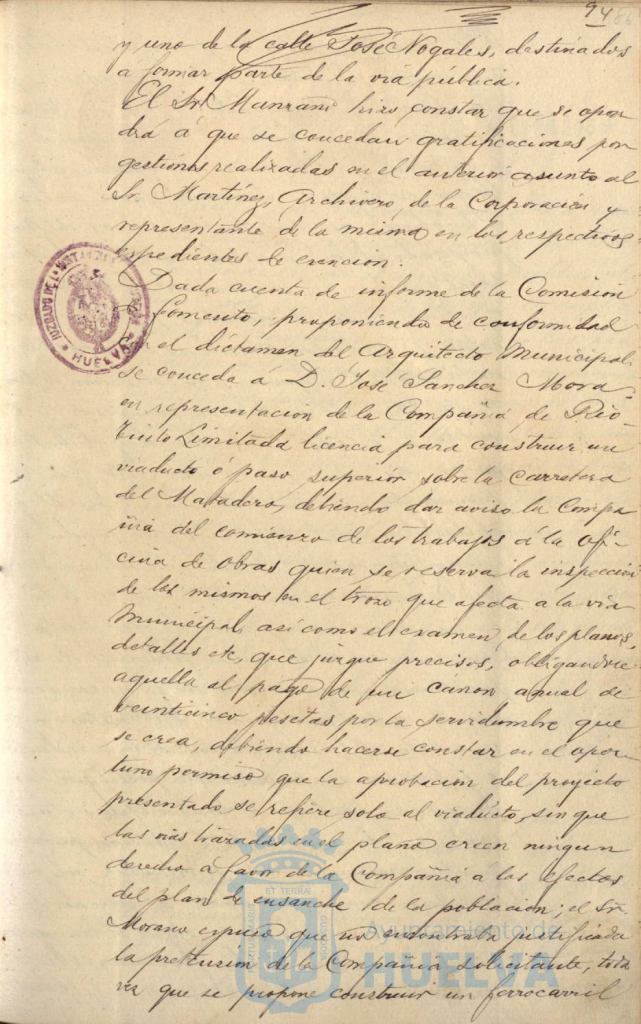 94
y uno de la calle José Nogales, destinados
a formar parte de la via pública.
El Sr. Manzano hizo constar que se opon
drá á que se concedan gratificaciones por
gestiones realizadas en el anterior asunto al
Sr. Martínez, Archivero, de la Corporación y
representante de la misma en los respectivos
expedientes de exención.
Dada cuenta de informe de la Comisión
Fomento, proponiendo de conformidad
el dictamen del Arquitecto Municipal,
se conceda á D. José Sanchez Mora
en representación de la Compañia de Rio-
Tinto Limitada licencia para construir un
viaducto ó paso superior sobre la carretera
del Matadero, debiendo dar aviso la Compa
ñia del comienzo de los trabajos á la ofi-
cina de obras quien se reserva la inspección
de los mismos en el trozo que afecta a la via
Municipal, asi como el examen, de los planos,
detalles etc, que juzgue precisos, obligandose
aquella al pago de un cánon anual de
veinticinco pesetas por la servidumbre que
se crea, debiendo hacerse constar en el opor-
tuno permiso que la aprobación del proyecto
presentado se refiere solo al viaducto, sin que
las vias trazadas en el plano creen ningun
derecho a favor de la Compañia á los efectos
del plan de ensanche de la población; el Sr.
Morano expuso que no encontraba justificada
la pretensión de la Compañia solicitante, toda
vez que se propone construir un ferrocarril
HUELVA
Ayuntamiento de
HUELVA